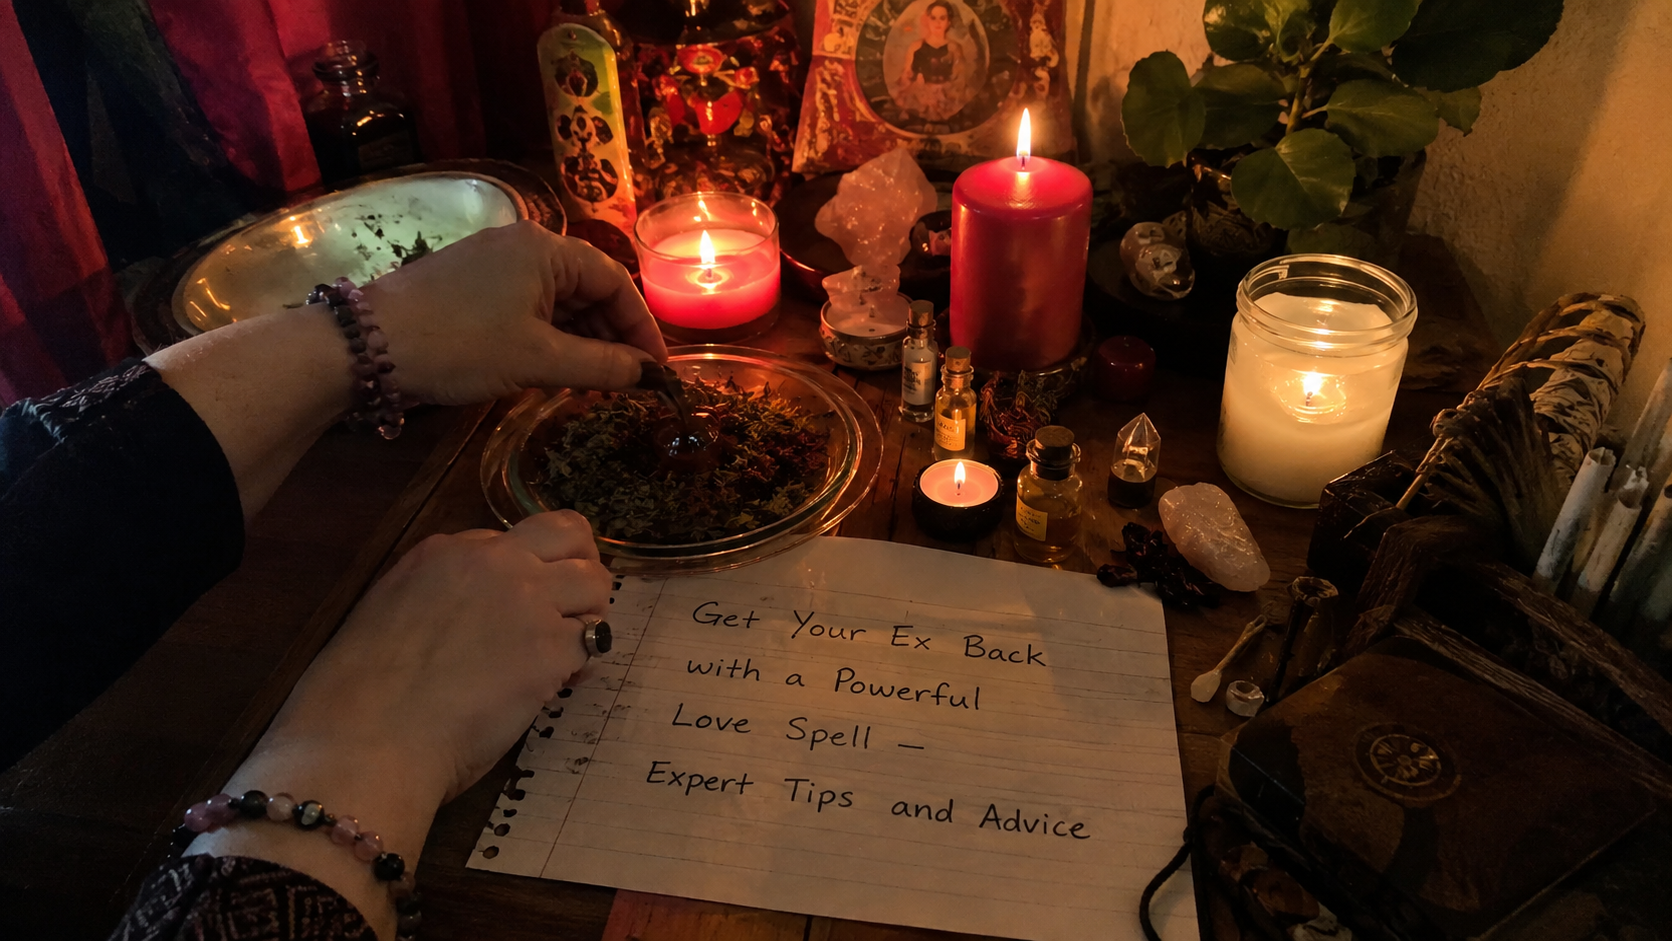 Get Your Ex Back
with a Powerful
Love Spell –
Expert Tips and Advice